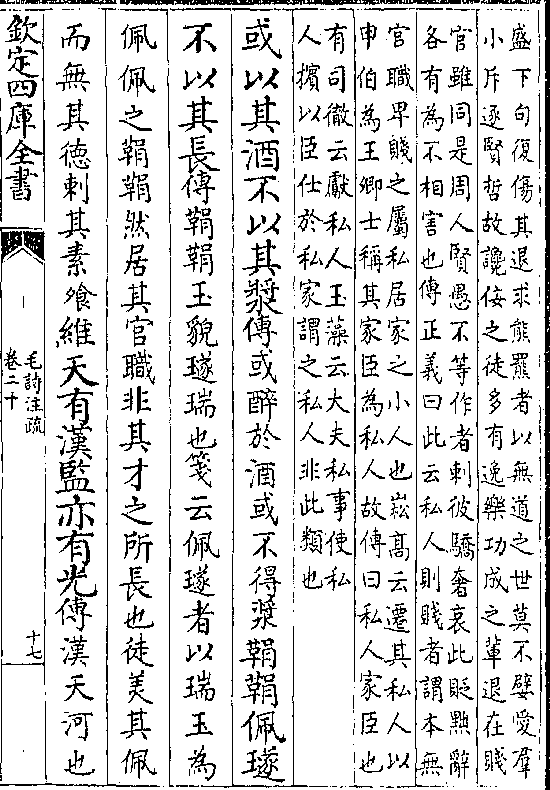 盛下句復傷其退求熊羆者以無道之世莫不嬖愛羣
小斥逐賢哲故讒佞之徒多有逸樂功成之輩退在賤
官雖同是周人賢愚不等作者刺彼驕奢哀此貶黜辭
各有為不相害也傳正義曰此云私人則賤者謂本無
官職卑賤之屬私居家之小人也崧髙云遷其私人以
申伯為王卿士稱其家臣為私人故傳曰私人家臣也
有司徹云獻私人玉藻云大夫私事使私
人擯以臣仕於私家謂之私人非此類也
或以其酒不以其漿傳或醉於酒或不得漿鞙鞙佩璲
不以其長傳鞙鞙玉貌璲瑞也箋云佩璲者以瑞玉為
佩佩之鞙鞙然居其官職非其才之所長也徒美其佩
而無其德刺其素飧維天有漢監亦有光傳漢天河也
欽定四庫全書
毛詩注疏
卷二十
十七